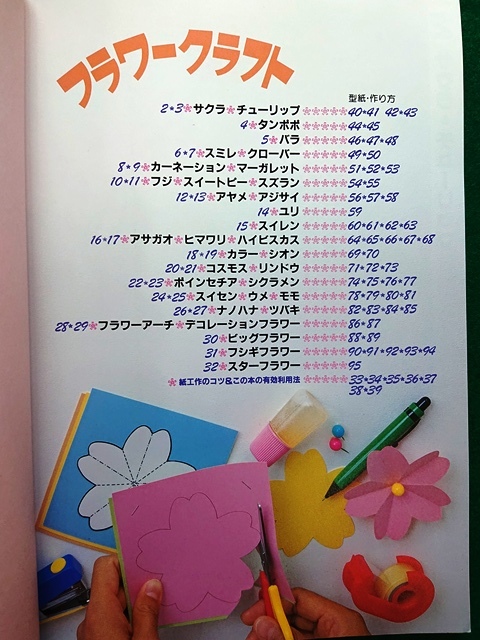 フラワークラフト
型紙・作り方
2*3*サクラ*チューリップ*****40*41 42*43
4*タンポポ*****44*45
5*バラ*****46*47*48
6*7*スミレ*クローバー*****49*50
8*9*カーネーション*マーガレット*****51*52*53
10*11*フジ*スイートピー*スズラン*****54*55
12*13*アヤメ*アジサイ*****56*57*58
14*ユリ*****59
15*スイレン*****60*61*62*63
16*17*アサガオ*ヒマワリ*ハイビスカス*****64*65*66*67*68
18*19*カラー*シオン*****69*70
20*21*コスモス*リンドウ*****71*72*73
22*23*ポインセチア*シクラメン*****74*75*76*77
24*25*スイセン*ウメ*モモ*****78*79*80*81
26*27*ナノハナ*ツバキ*****82*83*84*85
28*29*フラワーアーチ*デコレーションフラワー*****86*87
30*ビッグフラワー*****88*89
31*フシギフラワー*****90*91*92*93*94
32*スターフラワー*****95
*紙工作のコツ&この本の有効利用法*****33*34*35*36*37
38*39